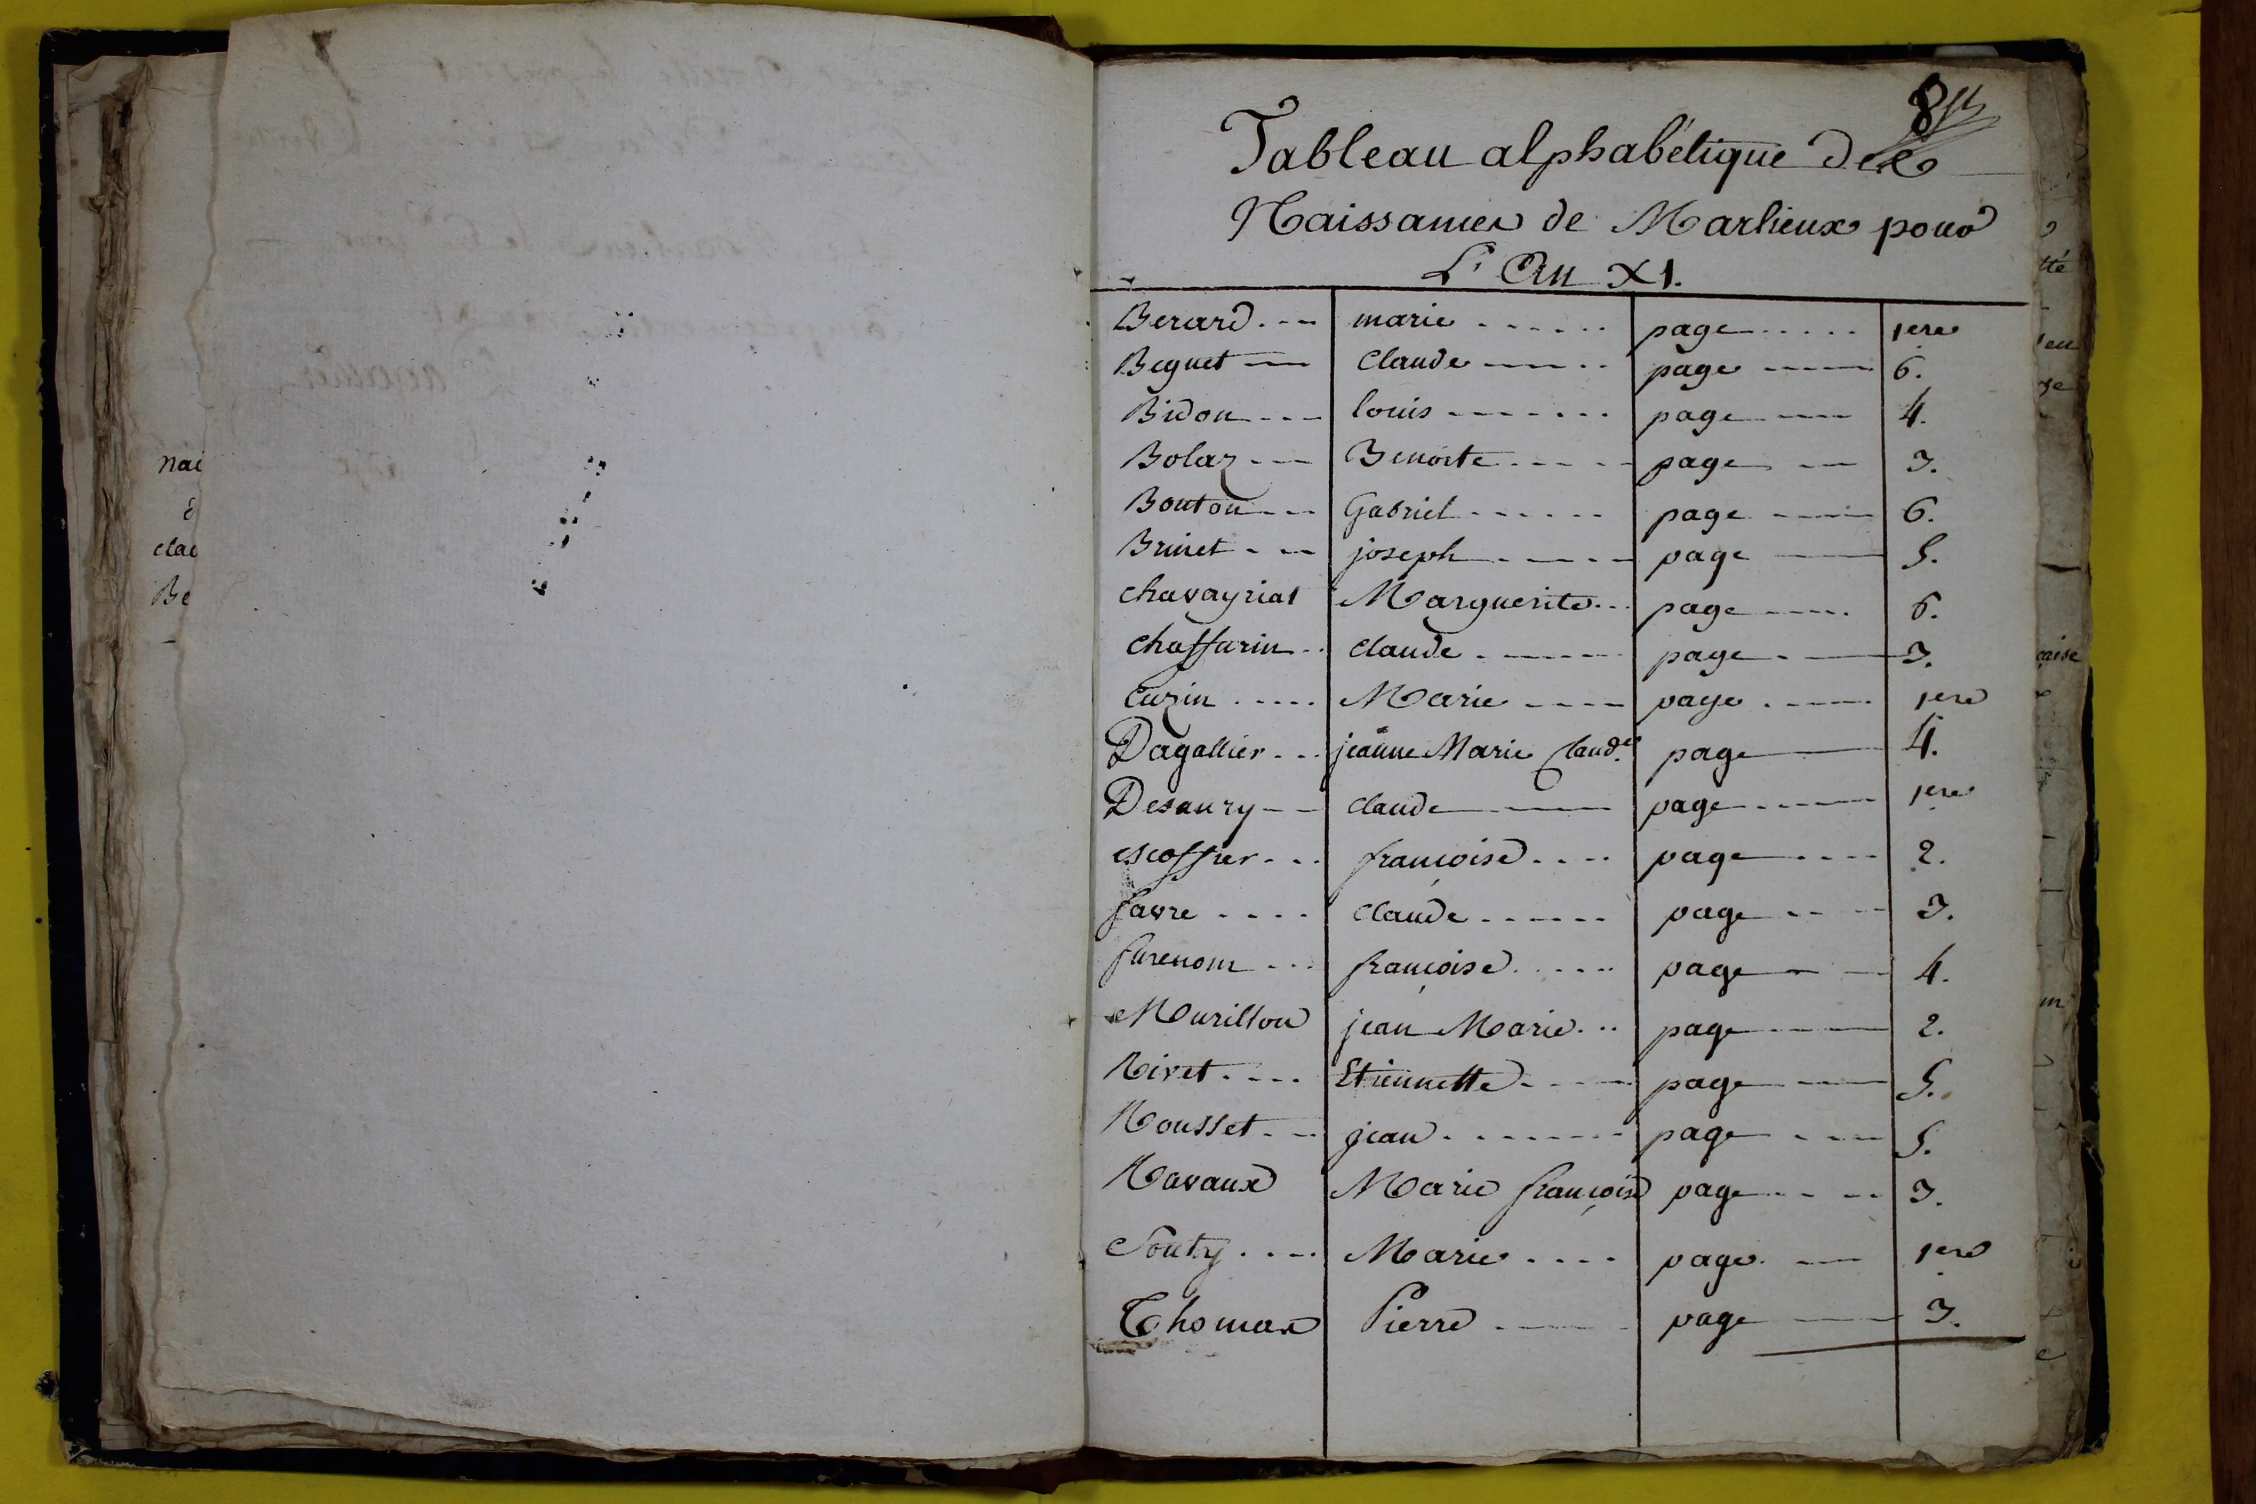 nai
clae
Be
8
Tableau alphabétique des
Naissances de Marlieux pour
L'An XI.
Berard marie page 1ere
Beguet Claude page 6.
Bidon louis page 4.
Bolaz Benoite page 3.
Bouton Gabriel page 6.
Brunet joseph page 5.
chavayriat Marguerite page 6.
chaffurin claude page 3.
Cuzin Marie page 1ere
Dagallier jeanne Marie Claude page 4.
Desaury claude page 1ere
escoffier françoise page 2.
favre claude page 3.
furenom françoise page 4.
Murillon jean Marie page 2.
Rivet Etiennette page 5.
Rousset jean page 5.
Ravaux Marie françoise page 3.
Souty Marie page 1ere
Thomas Pierre page 3.